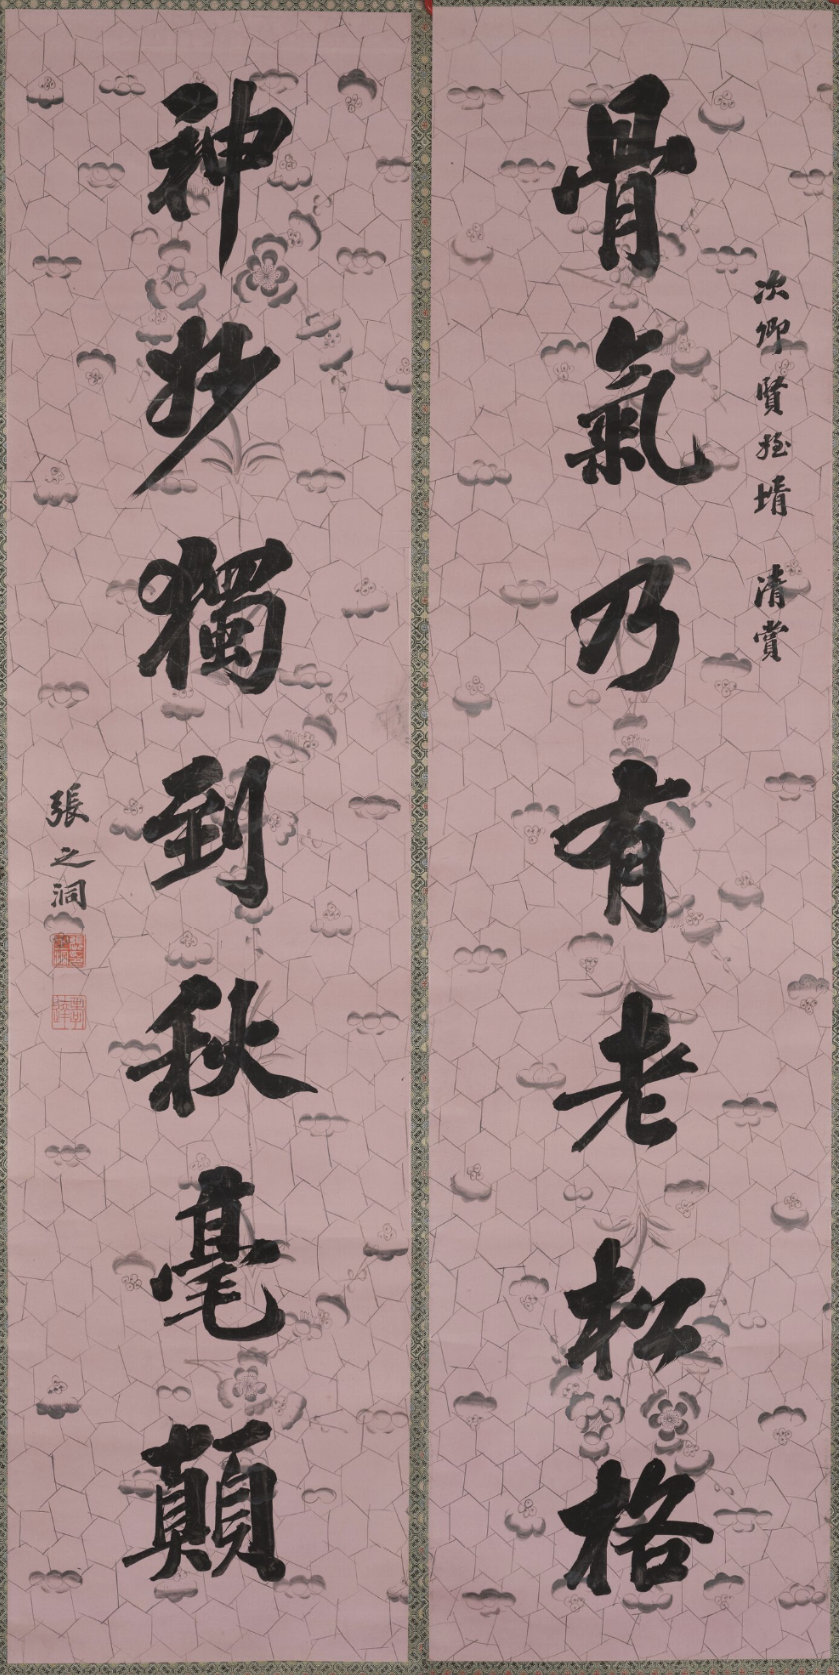 骨氣乃有老松格
次卿賢姪壻 清賞
神抄獨到秋毫顛
張之洞